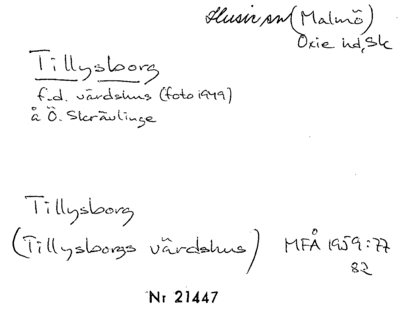 Husie sn (Malmö)
Oxie hd, Sk
Tillysborg
f.d. värdshus (foto 1949)
å Ö. Skrävlinge
Tillysborg
(Tillysborgs värdshus) MFÅ 1959:77
82
Nr 21447